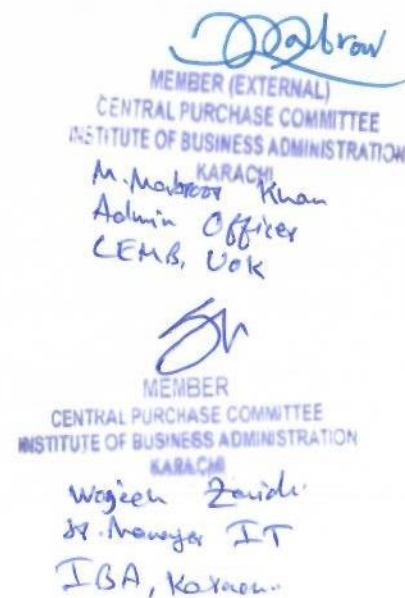 MEMBER (EXTERNAL)
CENTRAL PURCHASE COMMITTEE
INSTITUTE OF BUSINESS ADMINISTRATION
KARACHI
M. Mabroor Khan
Admin Officer
CEMB, UOK
MEMBER
CENTRAL PURCHASE COMMITTEE
INSTITUTE OF BUSINESS ADMINISTRATION
KARACHI
Wajeeh Zaidi
Sr. Manager IT
IBA, Karachi.